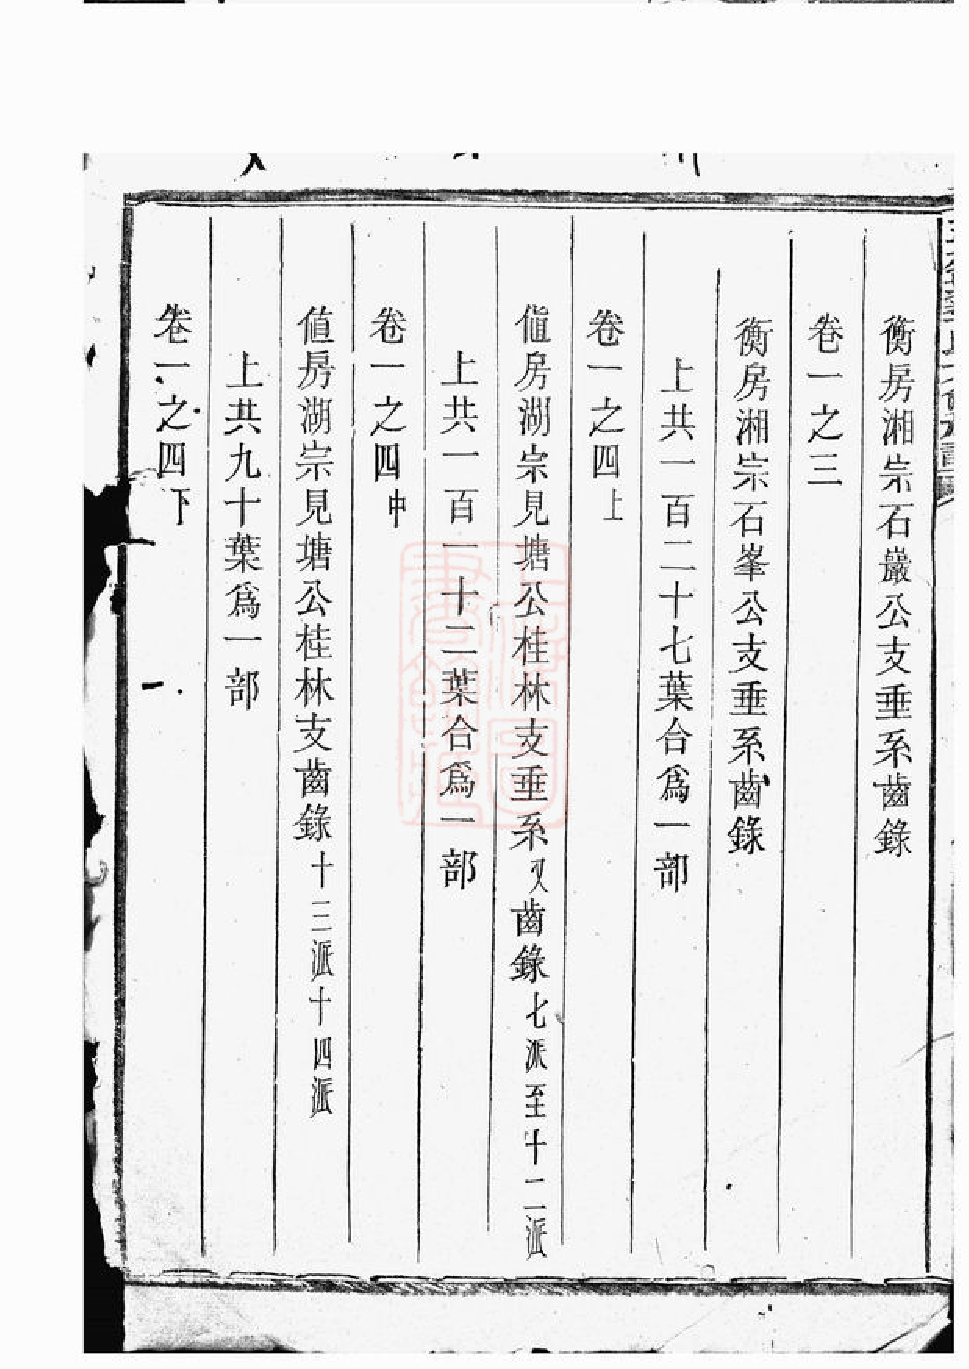 衡房湘宗石巖公支垂系齒錄
卷一之三
衡房湘宗石峯公支垂系齒錄
上共一百二十七葉合爲一部
卷一之四上
值房湖宗見塘公桂林支垂系又齒錄七派至十二派
上共一百一十二葉合爲一部
卷一之四中
值房湖宗見塘公桂林支齒錄十三派十四派
上共九十葉爲一部
卷一之四下